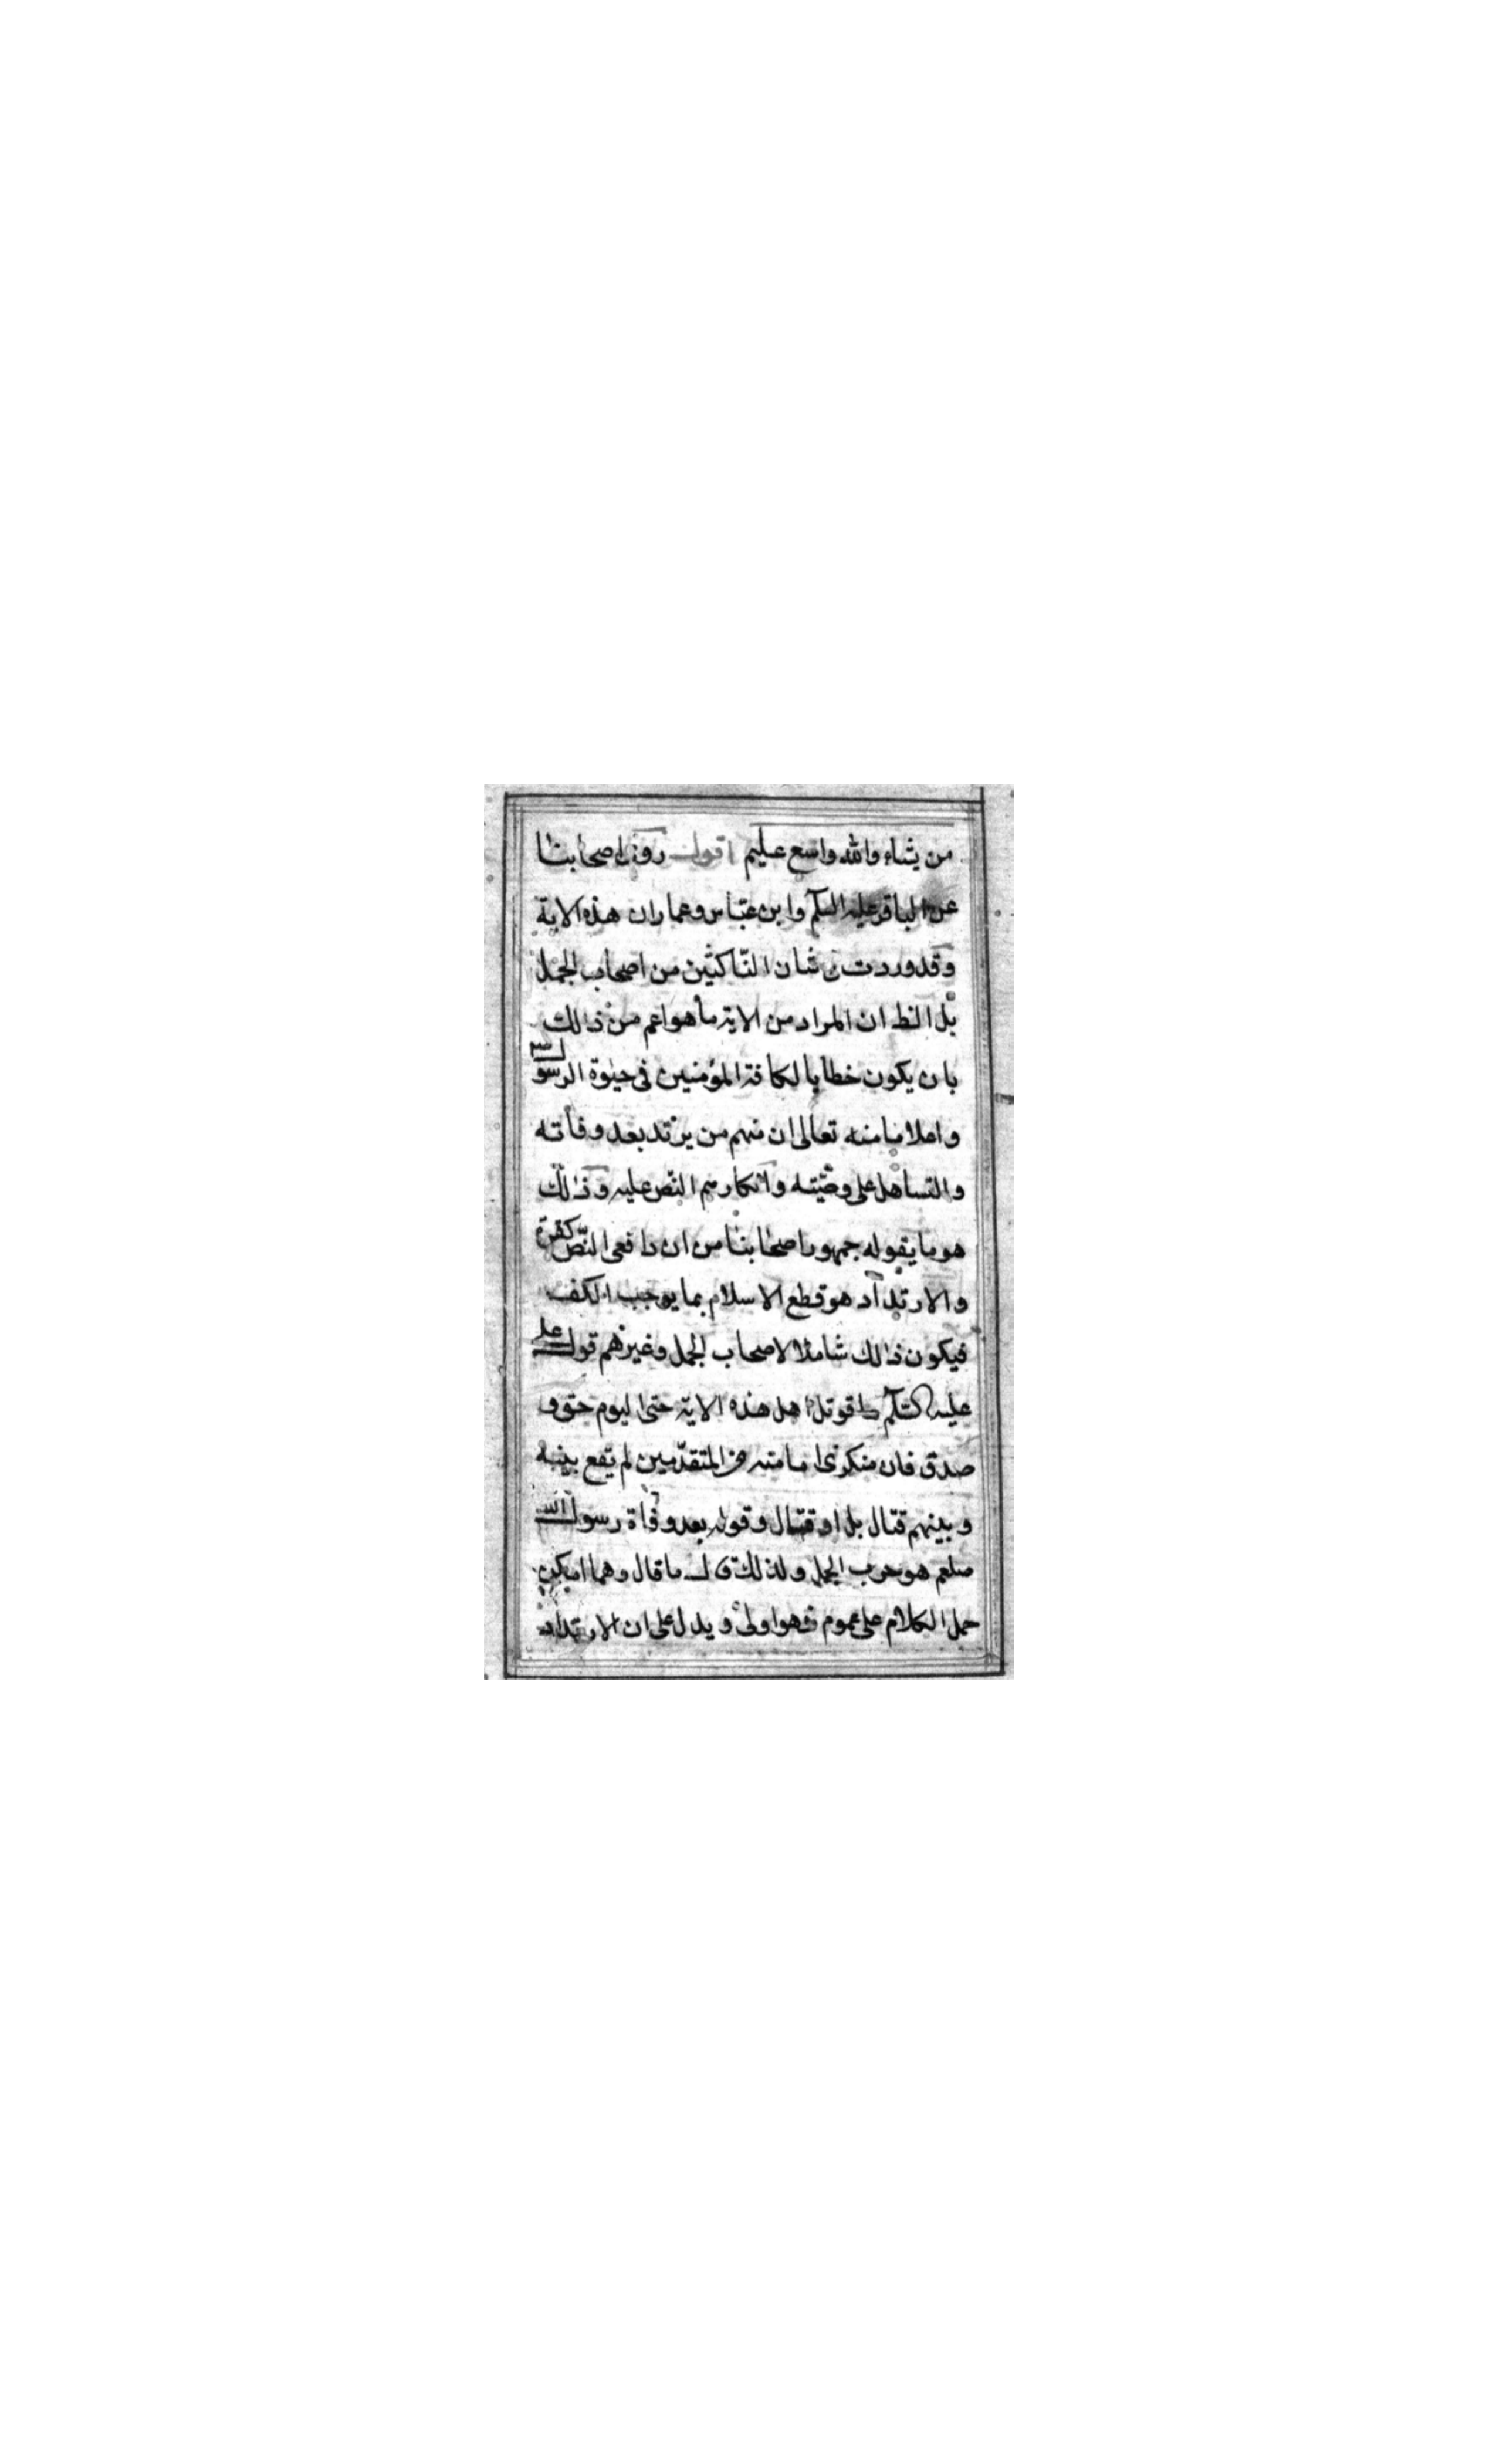 من يشاء والله واسع عليم اقول روى اصحابنا
عن الباقر عليه السلم وابن عباس وعمار ان هذه الاية
وقد وردت فى شان الناكثين من اصحاب الجمل
بل الظ ان المراد من الاية ما هو اعم من ذالك
بان يكون خطابا لكافة المؤمنين فى حيوة الرسول
واعلاما منه تعالى ان منهم من يرتد بعد وفاته
والتساهل على وصيّته وانكارهم النّص عليه وذالك
هو ما يقوله جمهور اصحابنا من ان دافعى النّص كفرة
والارتداد هو قطع الاسلام بما يوجب الكفر
فيكون ذالك شاملا لاصحاب الجمل وغيرهم قول على
عليه السلم ما قوتل اهل هذه الاية حتى اليوم حق و
صدق فان منكرى امامته من المتقدّمين لم يقع بينه
وبينهم قتال بل او قتال وقوله بعد وفاة رسول الله
صلعم هو حرب الجمل ولذلك ق‍ال ما قال ومهما امكن
حمل الكلام على عموم فهو اولى ويدل على ان الارتداد